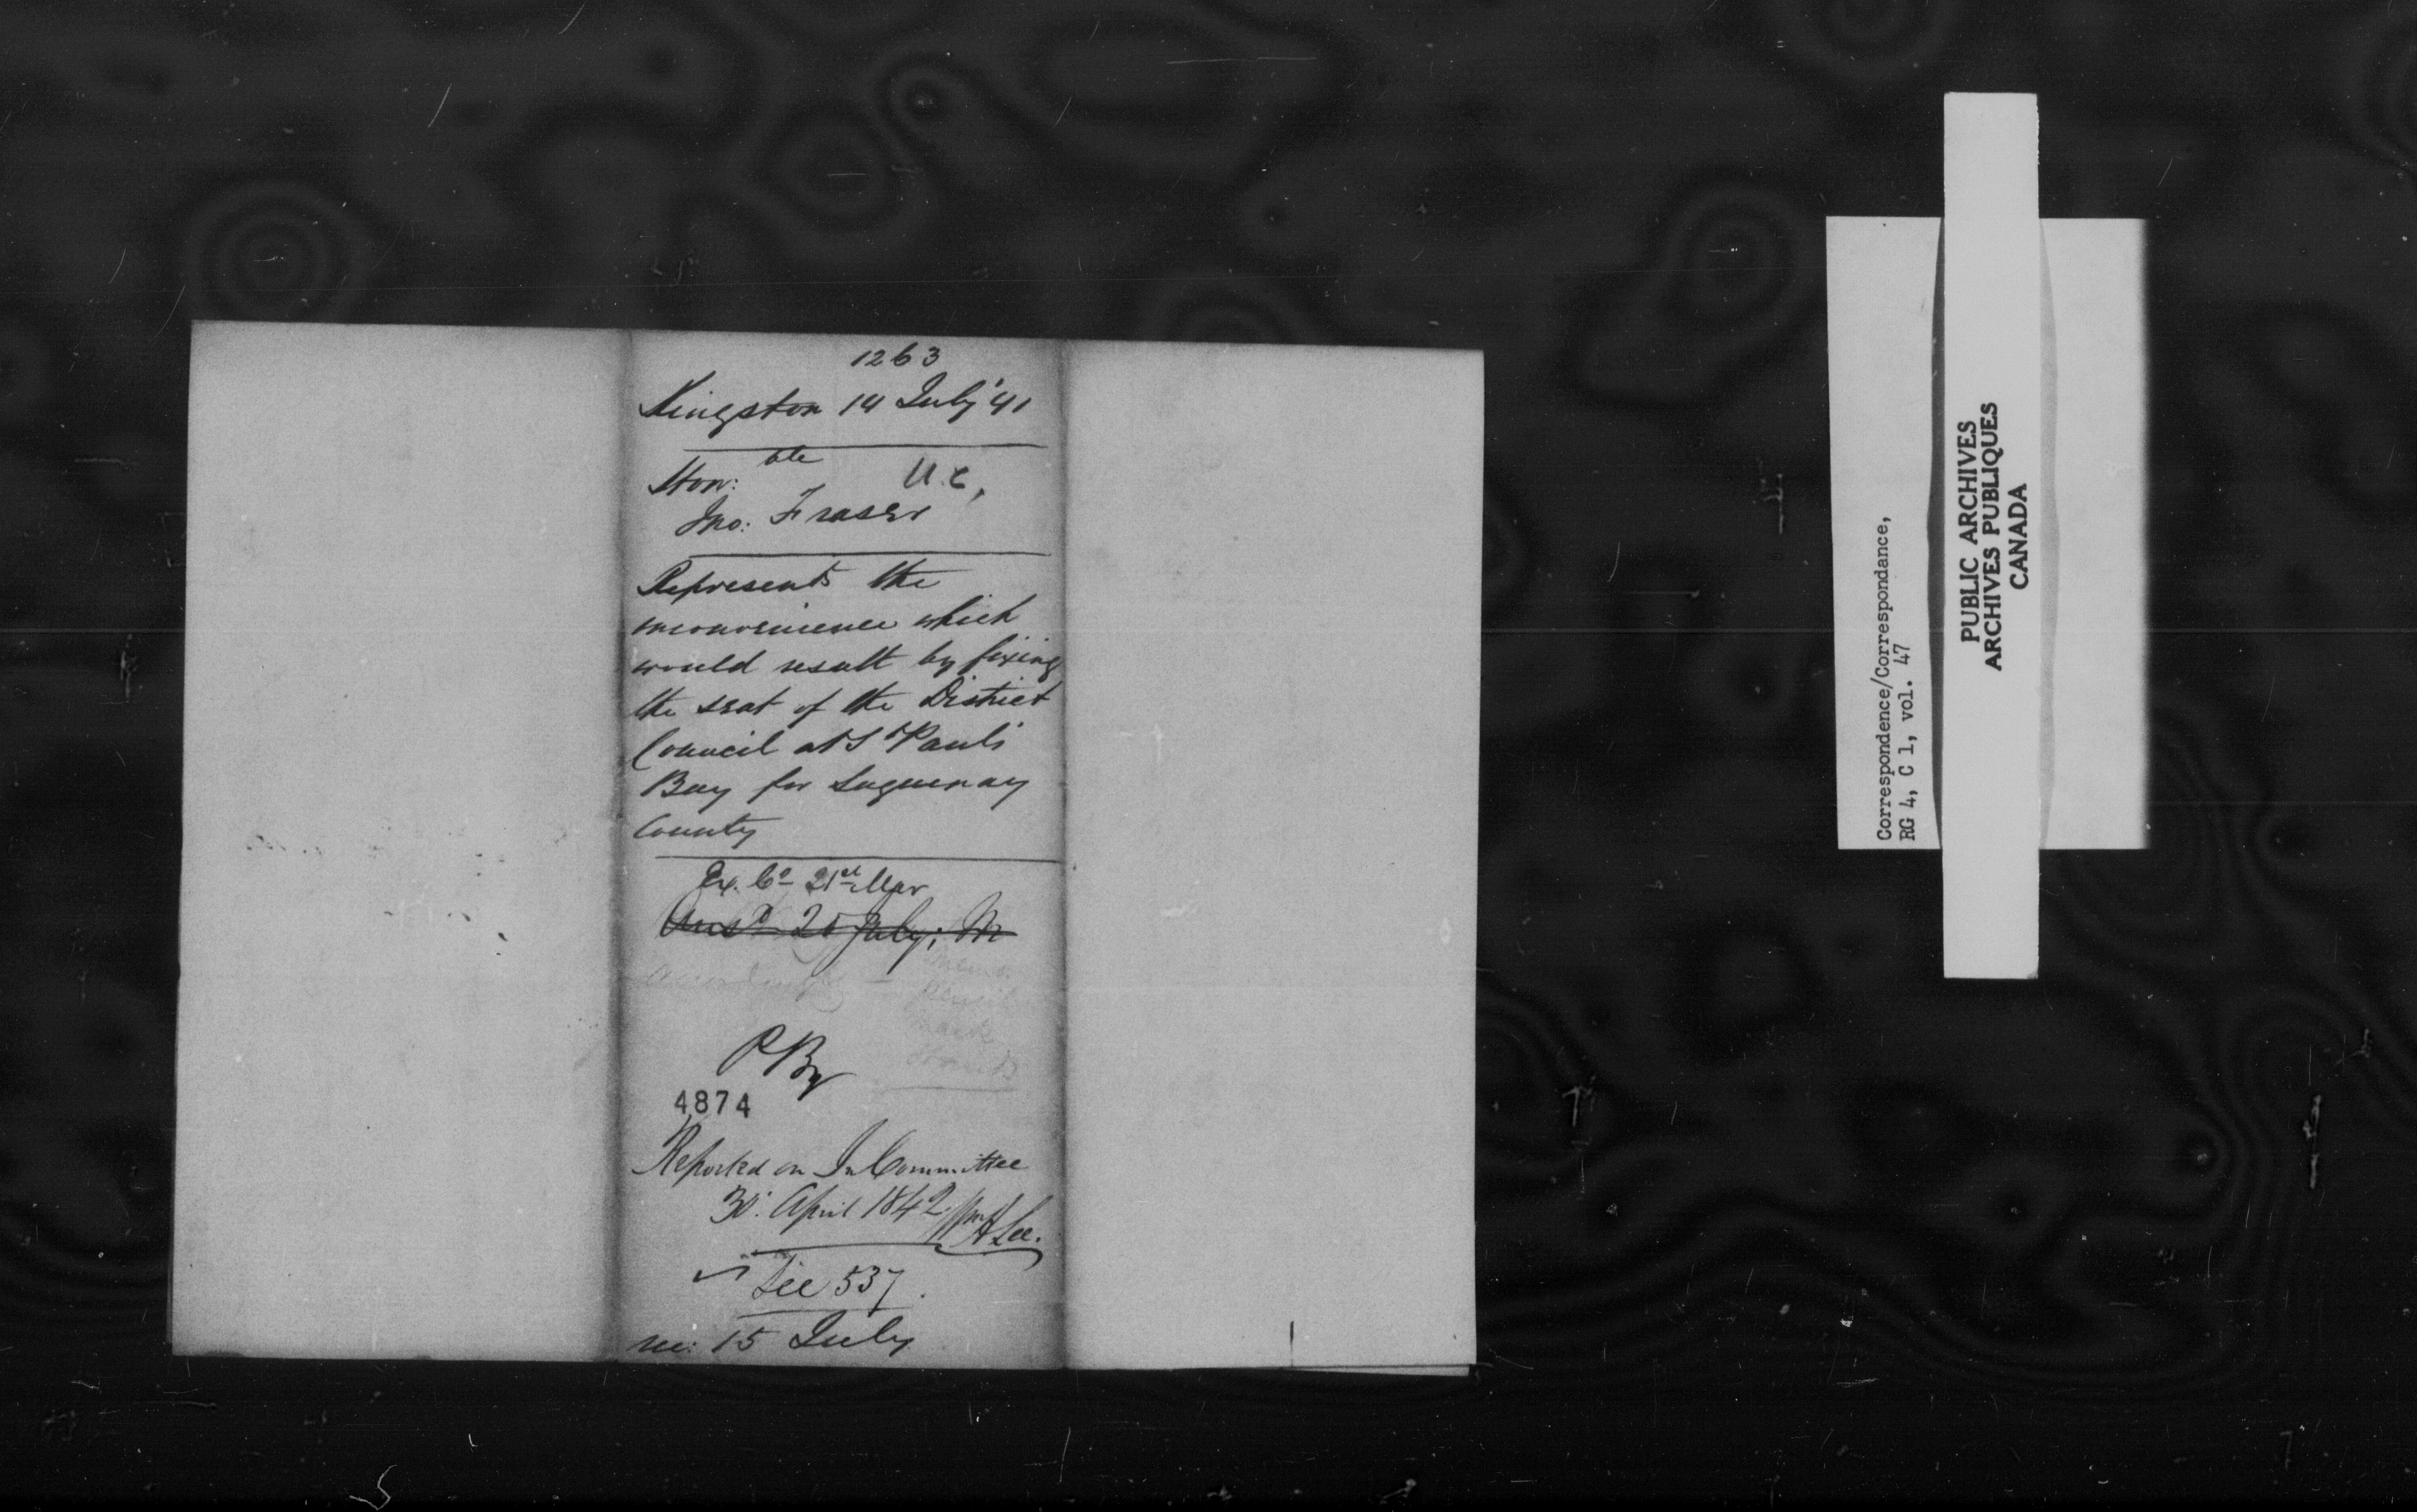 1263
Kingston 14 July '41
Hon:ble U.C,
Jno: Fraser
Represents the
inconvenience which
would result by fixing
the seat of the District
Council at St Paul's
Bay for Saguenay
County
Ex. Co 21st Mar
Ansd 20 July; M
Accordingly
P By
4874
Reported on In Committee
30: April 1842 Wm H Lee.
See 537.
rec: 15 July
Correspondence/Correspondance,
RG 4, C 1, vol. 47
PUBLIC ARCHIVES
ARCHIVES PUBLIQUES
CANADA